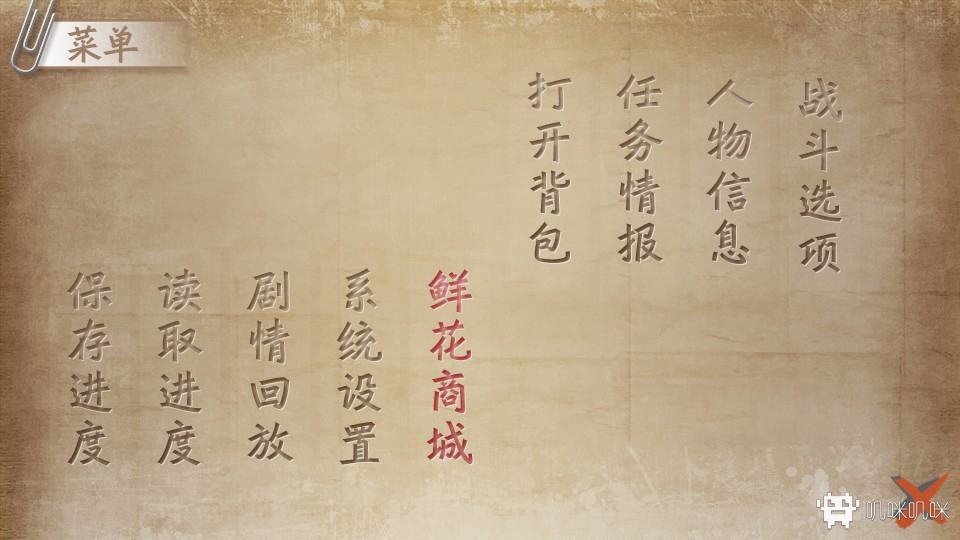 菜单
战斗选项
人物信息
任务情报
打开背包
鲜花商城
系统设置
剧情回放
读取进度
保存进度
叽咪叽咪